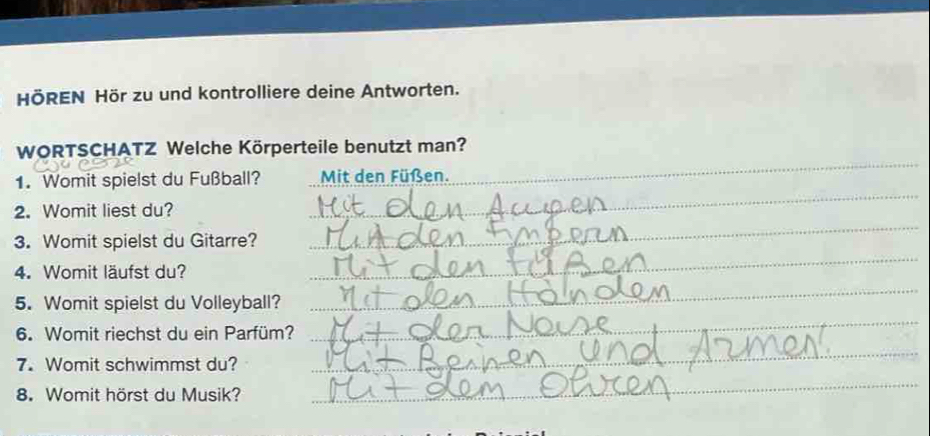 HÖREN Hör zu und kontrolliere deine Antworten.
WORTSCHATZ Welche Körperteile benutzt man?
1. Womit spielst du Fußball? Mit den Füßen.
2. Womit liest du? Mit den Augen
3. Womit spielst du Gitarre? Mit den
4. Womit läufst du? Mit den Füßen
5. Womit spielst du Volleyball? Mit den Händen
6. Womit riechst du ein Parfüm? Mit der Nase
7. Womit schwimmst du? Mit Beinen und Armen.
8. Womit hörst du Musik? Mit dem Ohren